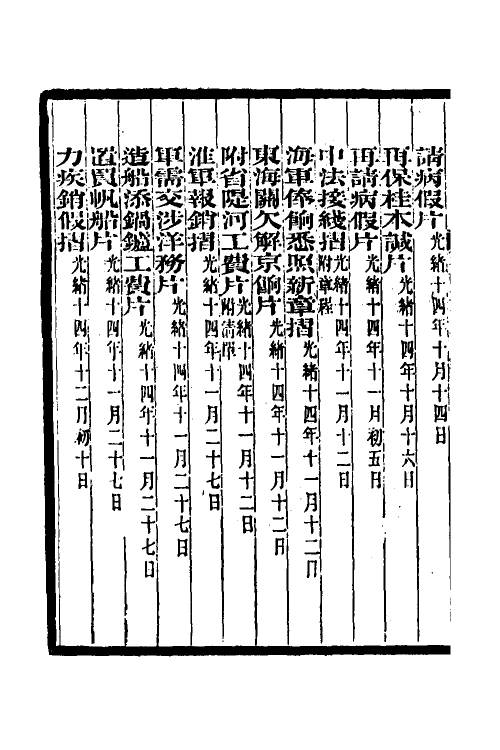 請病假片光緒十四年十月十四日
再保桂本誠片光緒十四年十月十六日
再請病假片光緒十四年十一月初五日
中法接綫摺附章程光緒十四年十一月十二日
海軍俸餉悉照新章摺光緒十四年十一月十二日
東海關欠解京餉片光緒十四年十一月十二日
附省隄河工費片附清單光緒十四年十一月十二日
淮軍報銷摺光緒十四年十一月二十七日
軍需交涉洋務片光緒十四年十一月二十七日
造船添鍋鑪工費片光緒十四年十一月二十七日
置買帆船片光緒十四年十一月二十七日
力疾銷假摺光緒十四年十二月初十日